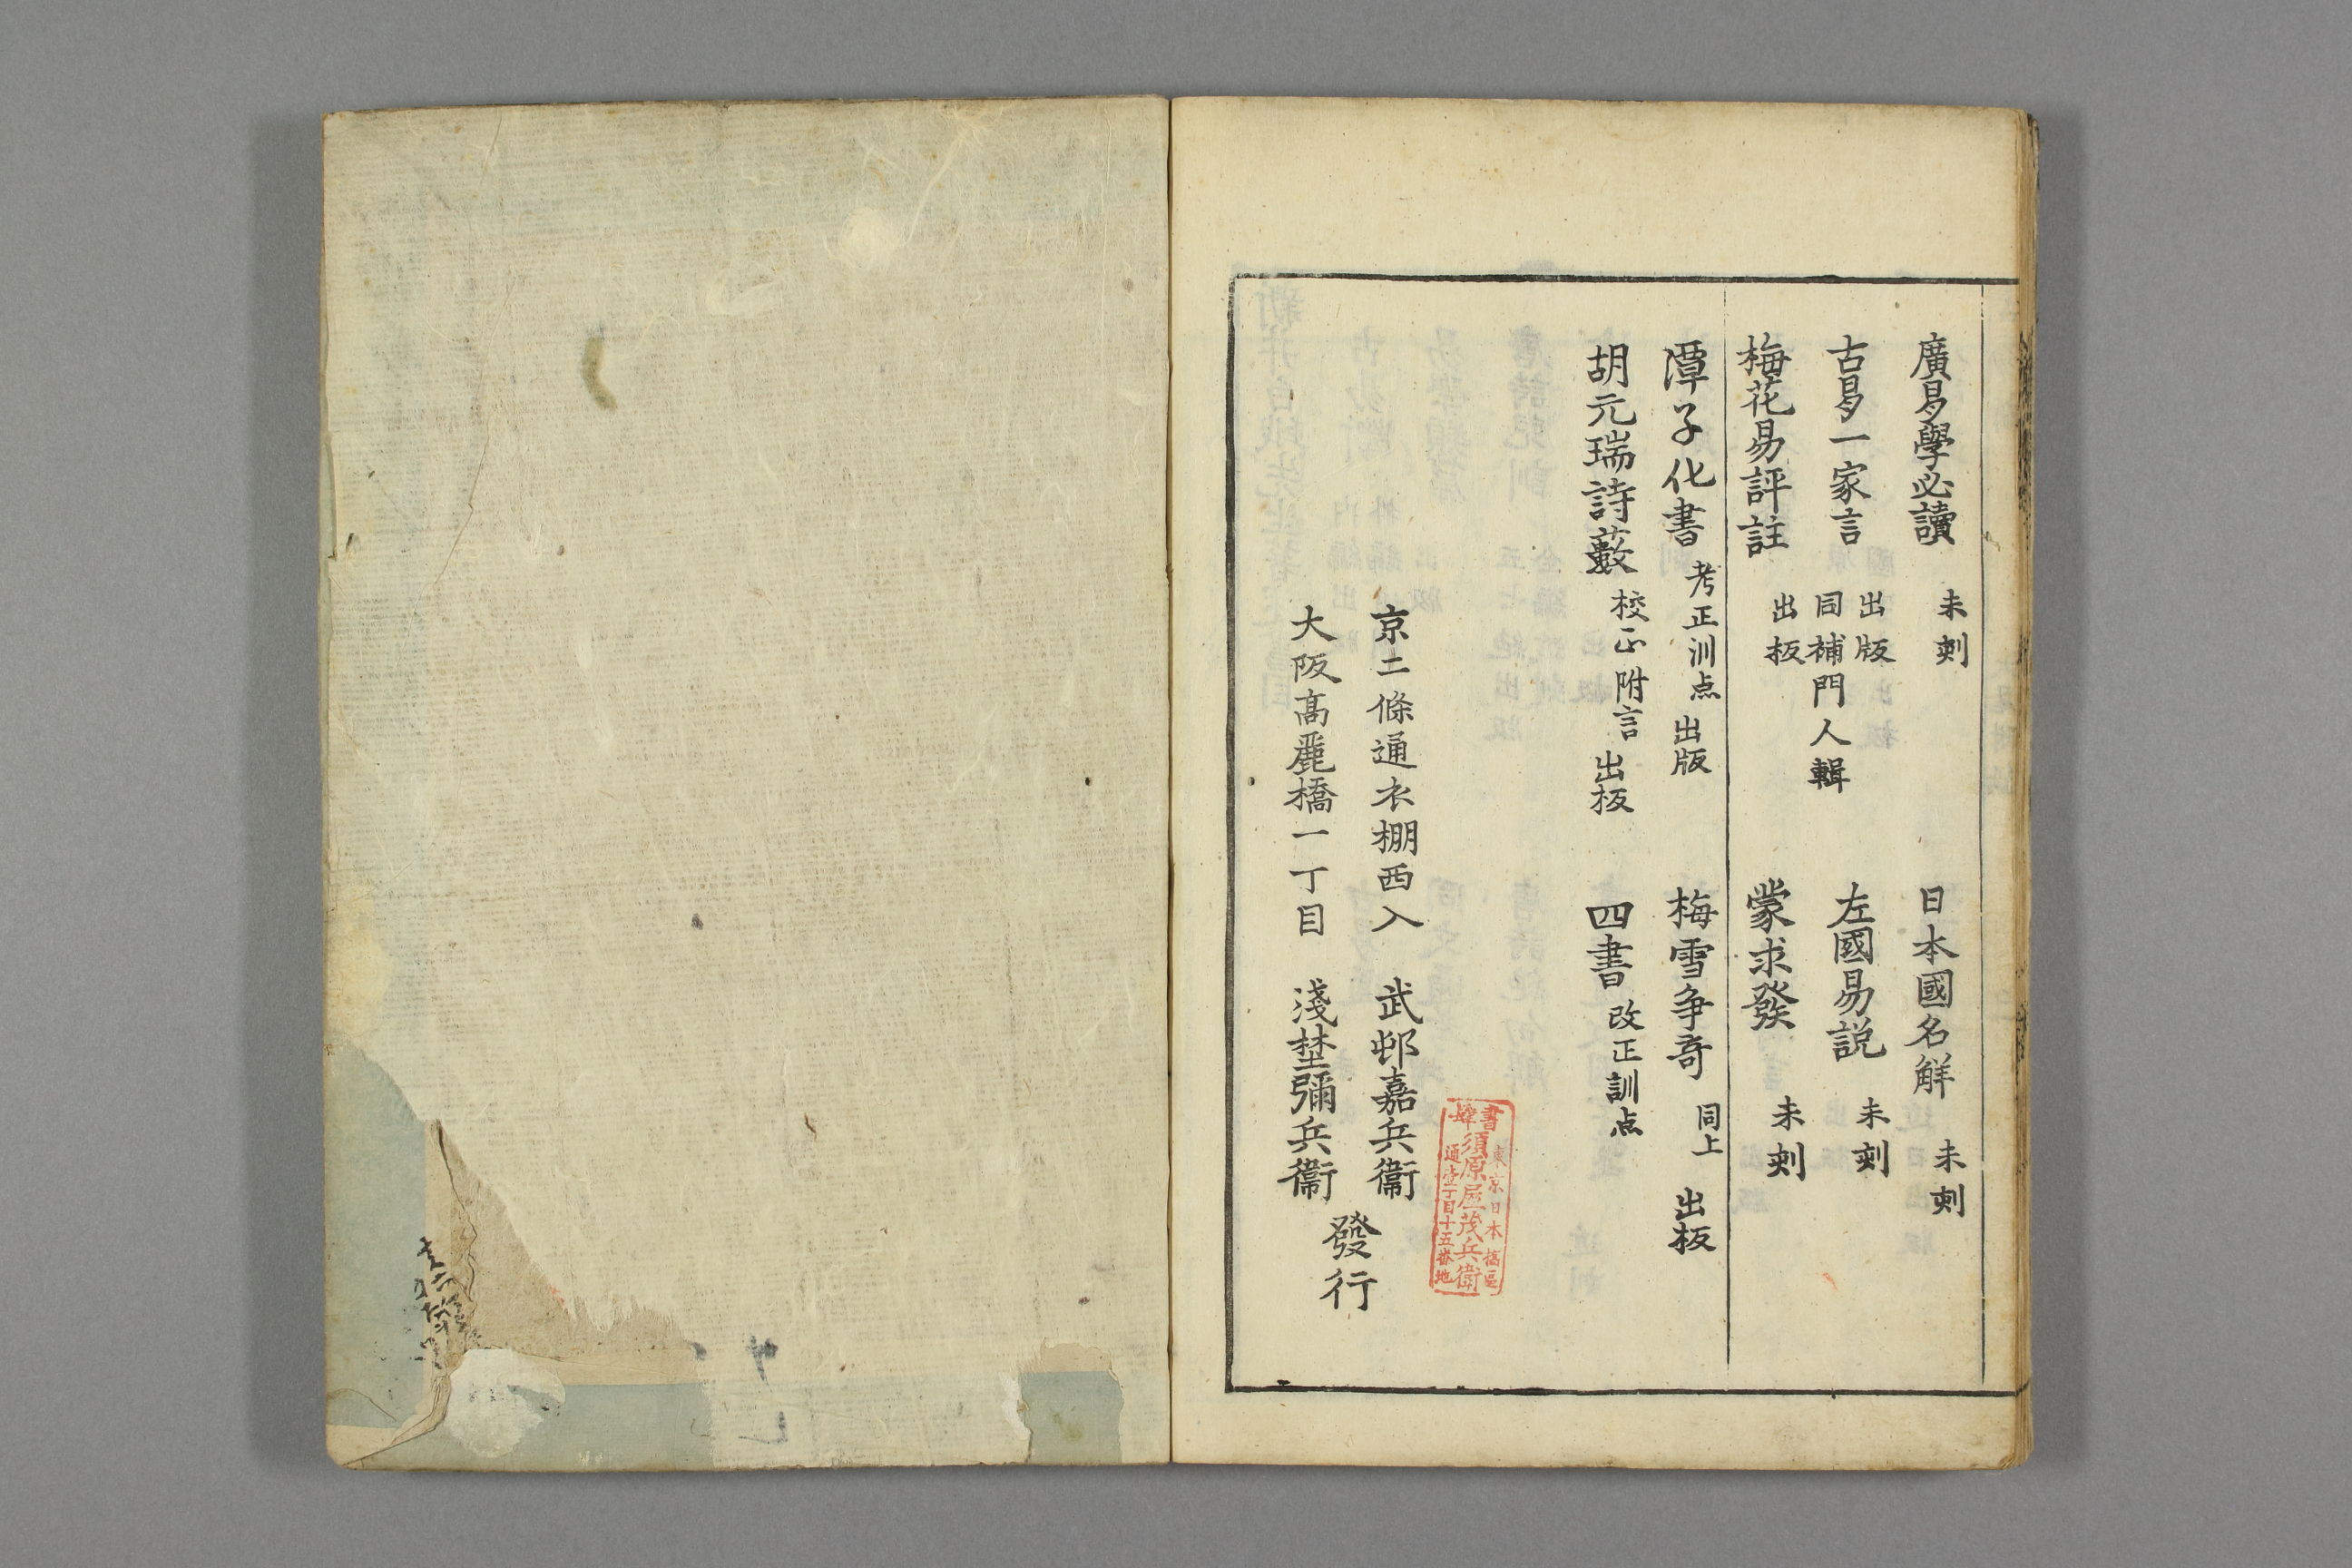 廣易學必讀 未刻 日本國名解 未刻
古易一家言 出版 同補門人輯 左國易説 未刻
梅花易評註 出板 蒙求發 未刻
潭子化書 考正訓点 出版 梅雪争奇 同上 出板
胡元瑞詩藪 校正附言 出板 四書 改正訓点
書肆
東京日本橋區
須原屋茂兵衛
通壹丁目十五番地
京二條通衣棚西入 武邨嘉兵衞
大阪高麗橋一丁目 淺埜彌兵衞
發行